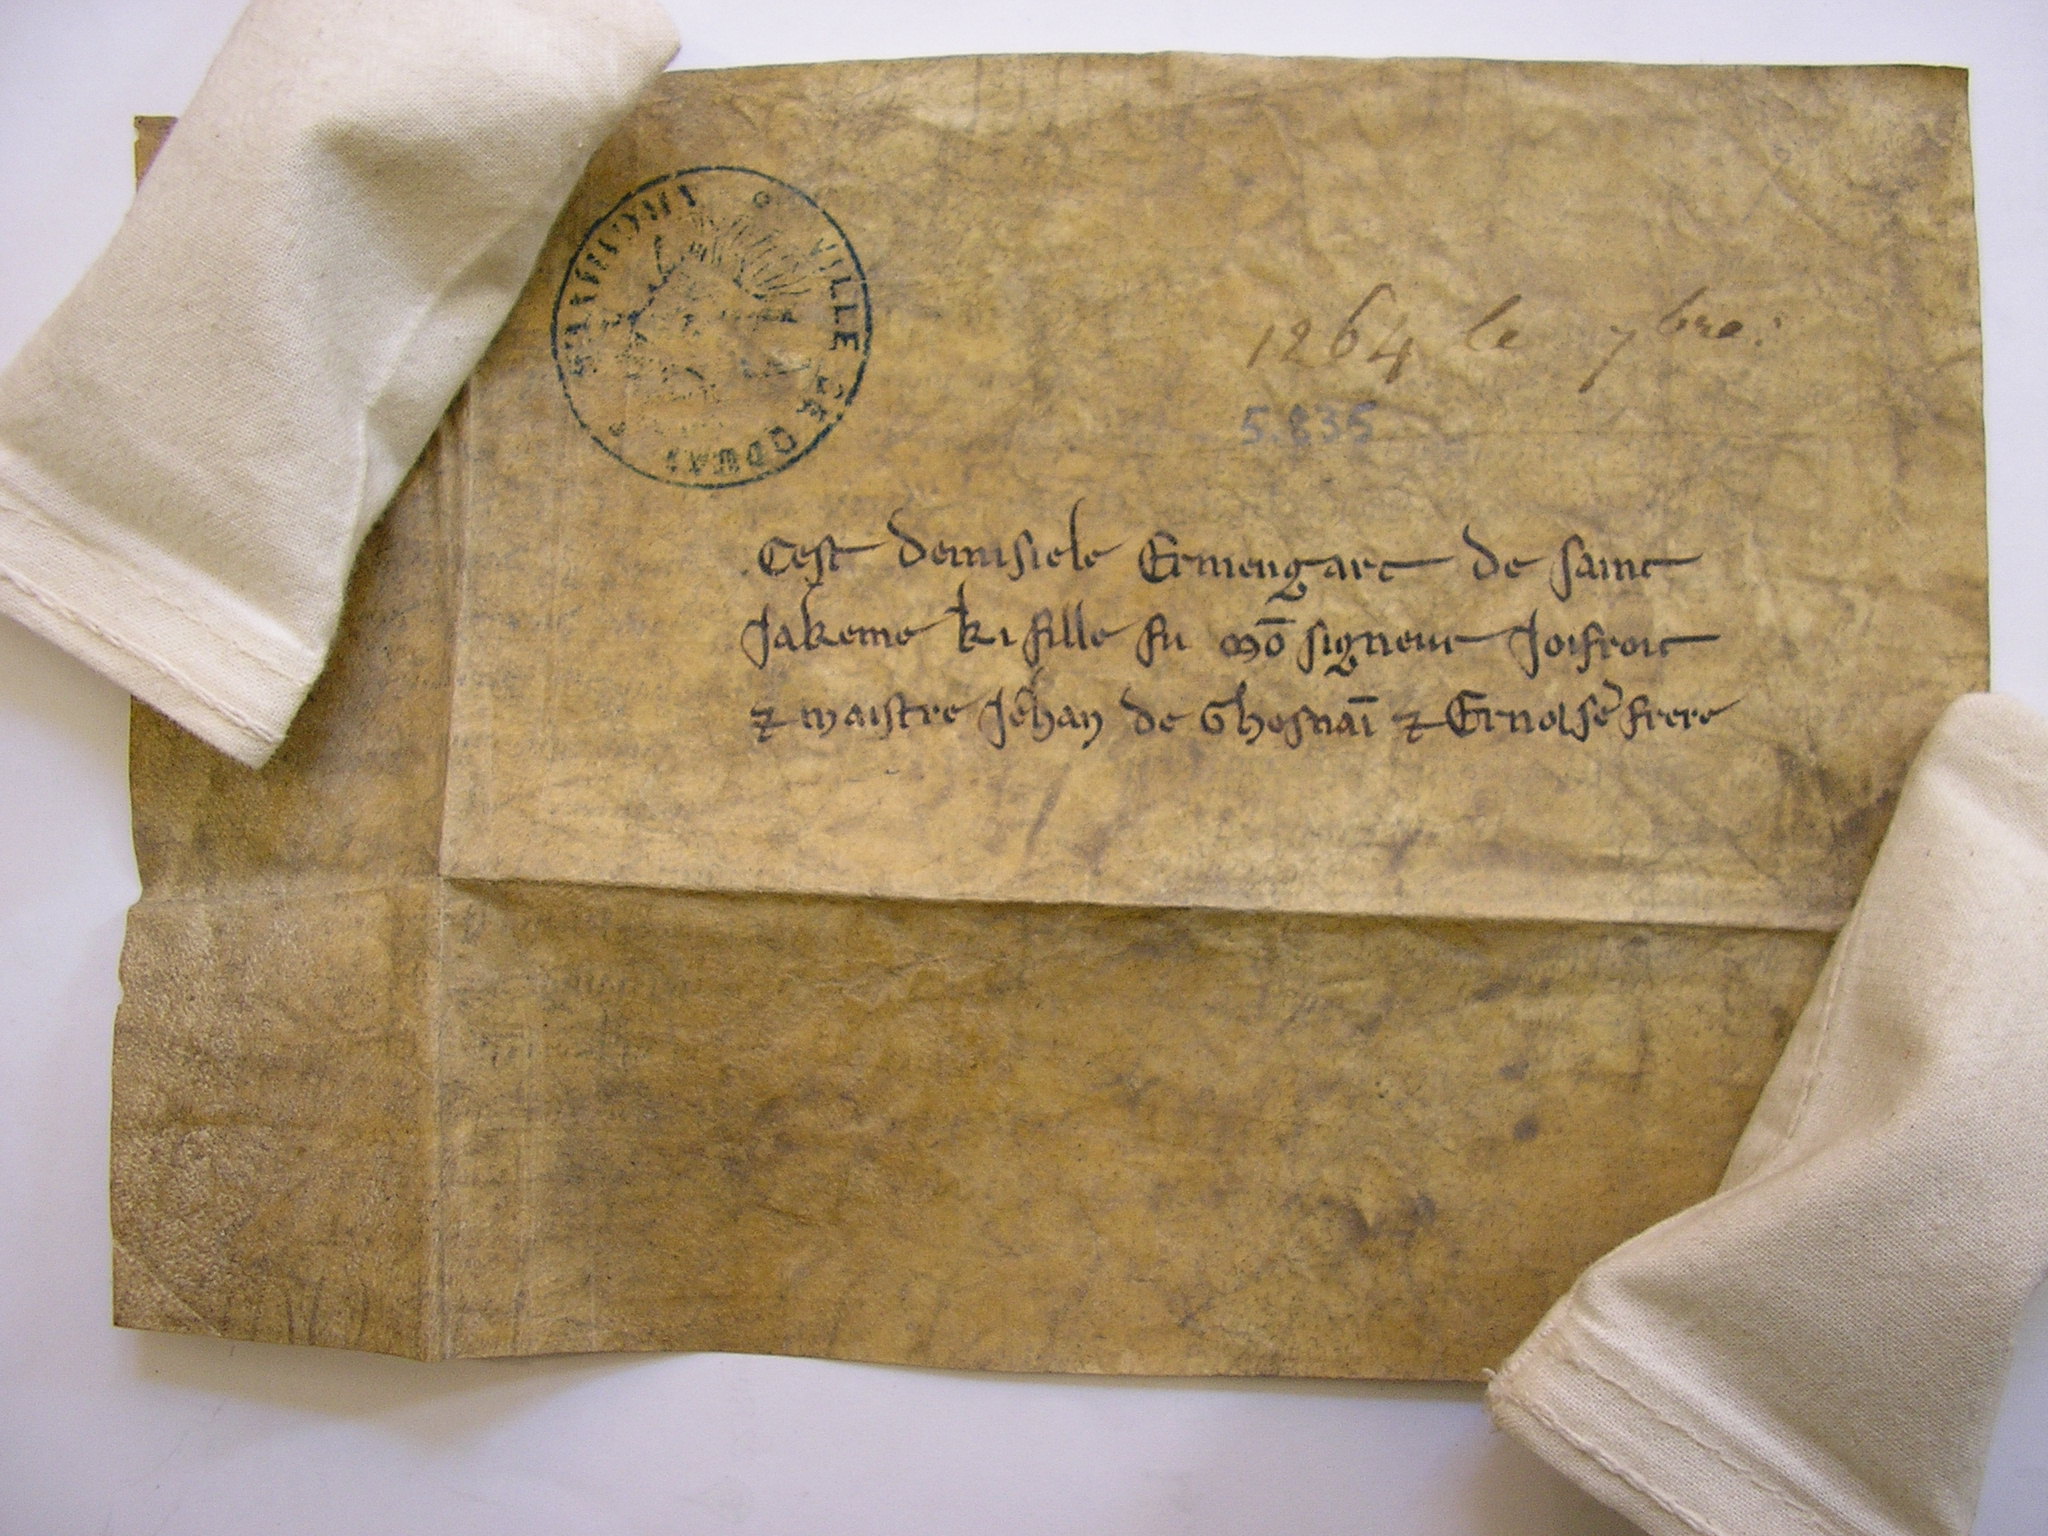 VILLE DE DOUAI
ARCHIVES
1264 le 7bre:
5.835
Cest demisiele Ermengart de saint
Jakeme ki fille fu mō signeur Joifroit
⁊ maistre Jehan de Ghesnaī ⁊ Ernol se frere